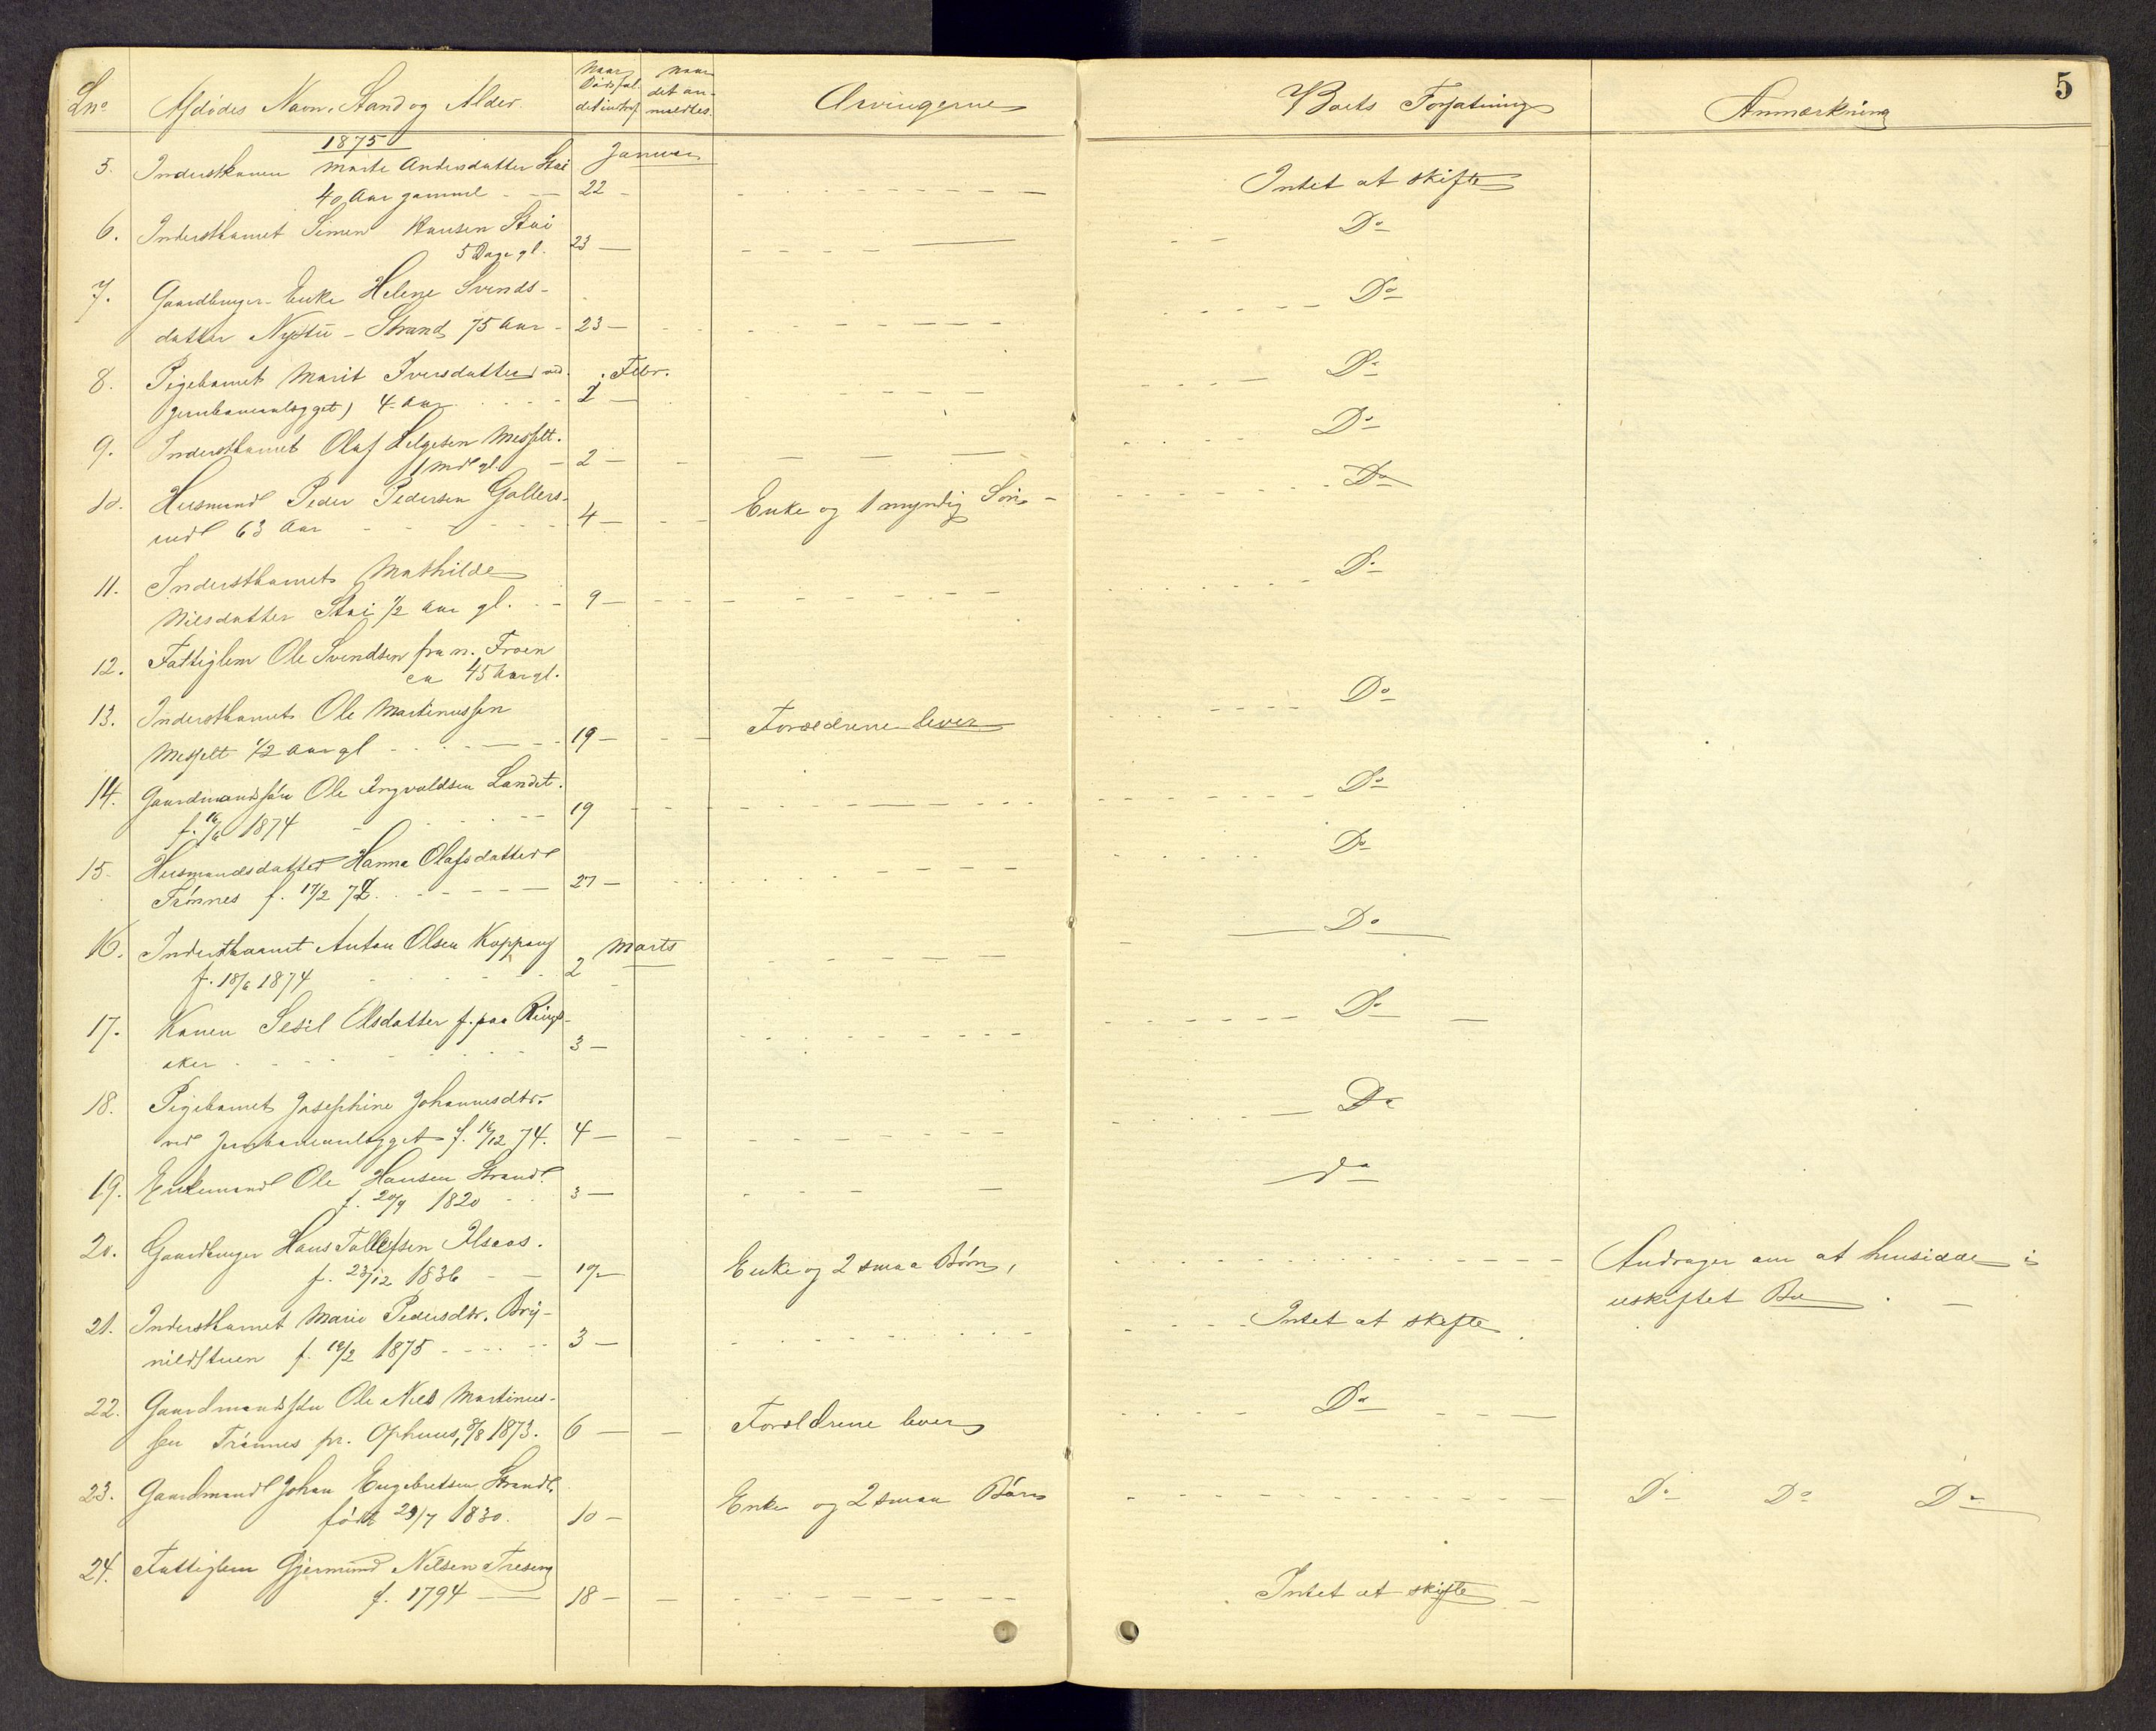 5
Lno Afdødes Navn, Stand og Alder. Naar Dødsfaldet indtraf. Naar det anmeldtes. Arvingerne Boets Forfatning Anmærkning
1875 Januar
5. Inderstkonen Marte Andersdatter Stai
40 Aar gammel 22 - Intet at skifte
6. Inderstbarnet Simen Hansen Stai Do
5 Dage gl. 23 -
7. Gaardbruger-Enke Helene Svends- Do
datter Nystu - Strand, 75 Aar - 23 -
8. Pigebarnet Marit Iversdatter ved Febr. Do
Jernbaneanlægget) 4 Aar 2 -
9. Inderstbarnet Olaf Helgesen Messelt. Do
1 Md gl. - 2 -
10. Husmand Peder Pedersen Gollers- Enke og 1 myndig Søn - Do
rud 63 Aar 4 -
11. Inderstbarnet Mathilde Do
Nilsdatter Stai 1/2 Aar gl. 9 -
12. Fattiglem Ole Svendsen fra n. Froen
ca 45 Aar gl.
13. Inderstbarnet Ole Martinussen Do
Messelt 1/2 Aar gl 19 - Forældrene lever
14. Gaardmandssøn Ole Ingvaldsen Landet. Do
f. 16/6 1874 19
15. Husmandsdatter Hanna Olafsdatter Do
Trønnes f. 17/2 72. 27 -
16. Inderstbarnet Anton Olsen Koppang Marts Do
f. 18/6 1874 2
17. Konen Sesil Olsdatter f. paa Rings- Do
aker 3 -
18. Pigebarnet Josephine Johannesdtr. Do
ved Jernbaneanlægget f. 16/12 74. 4 -
19. Enkemand Ole Hansen Strand. do
f. 20/9 1820 3 -
20. Gaardbruger Hans Tollefsen Ilsaas. Enke og 2 smaa Børn, Andrager om at hensidde i
f. 23/12 1836 19 - uskiftet Bo
21. Inderstbarnet Marie Pedersdtr. Bry- Intet at skifte
nildstuen f. 19/2 1875 3 -
22. Gaardmandssøn Ole Nils Martinus- Do
sen Trønnes pr. Ophuus, 8/8 1873. 6 - Forældrene lever
23. Gaardmand Johan Engebretsen Strand. Enke og 2 smaa Børn Do Do Do
født 29/7 1830. 10 -
24. Fattiglem Gjermund Nilsen Treseng Intet at skifte
f. 1794 18 -